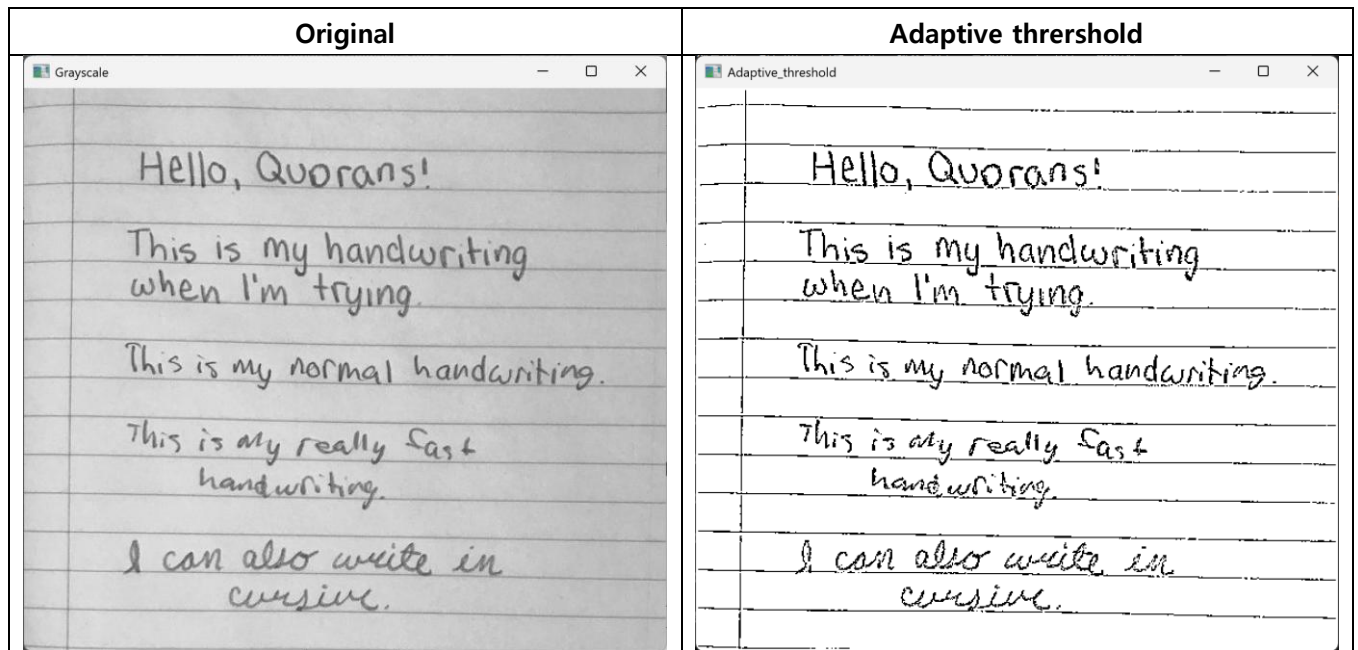 Original
Adaptive thrershold
Grayscale
Adaptive_threshold
Hello, Quorans!
This is my handwriting
when I'm trying.
This is my normal handwriting.
This is my really fast
handwriting.
I can also write in
cursive.
Hello, Quorans!
This is my handwriting
when I'm trying.
This is my normal handwriting.
This is my really fast
handwriting.
I can also write in
cursive.